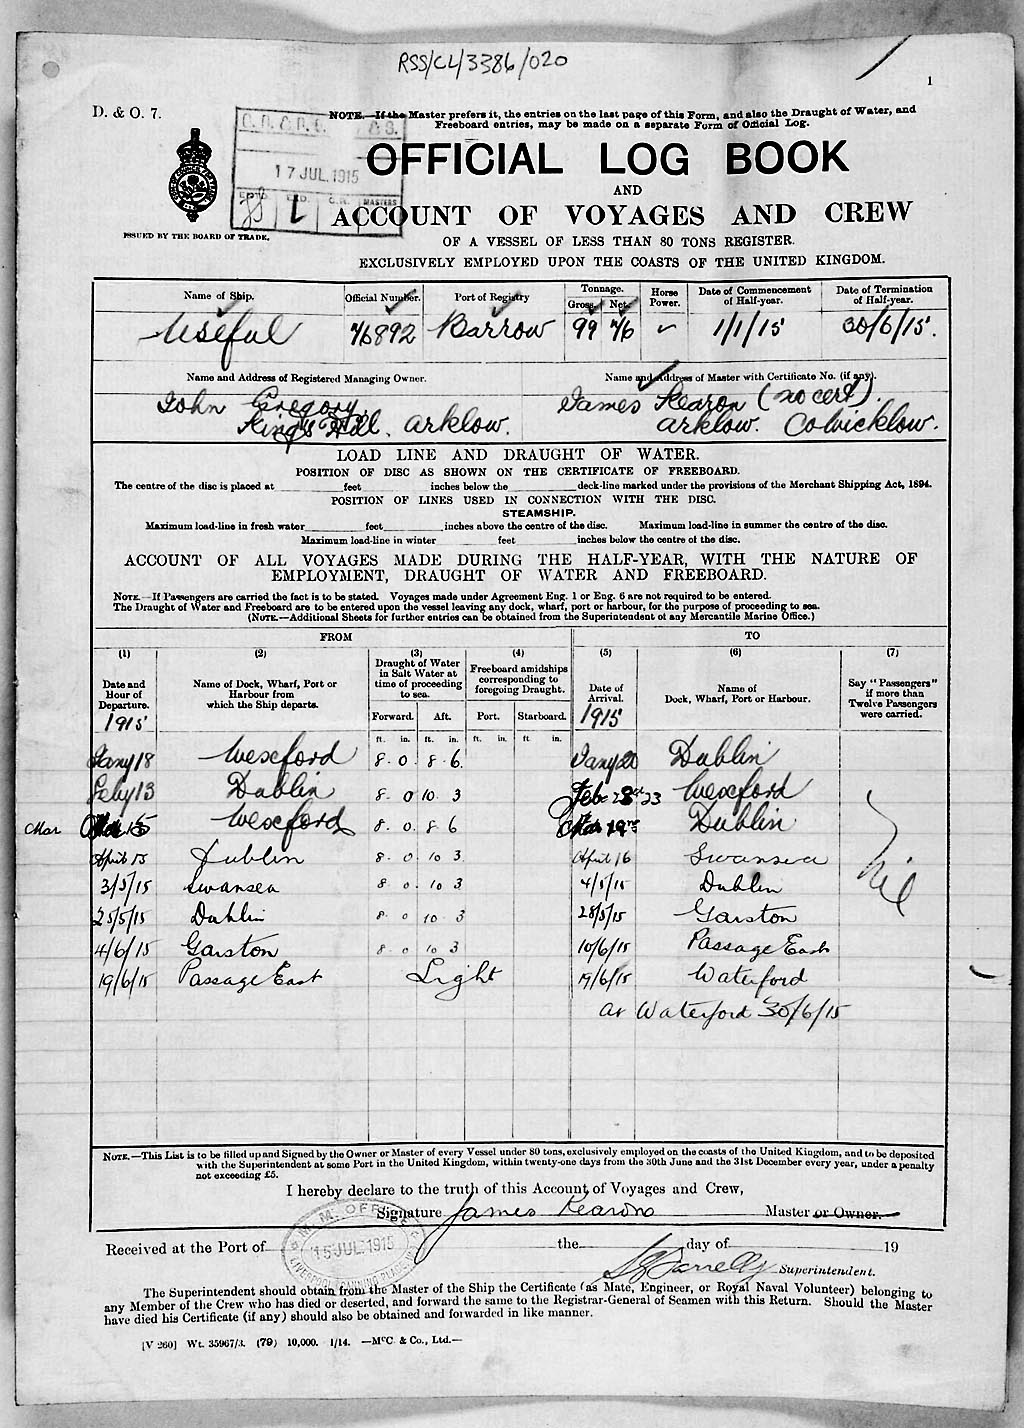 RSS/CL/3386/020
1
D. & O. 7.
NOTE.—If the Master prefers it, the entries on the last page of this Form, and also the Draught of Water, and
Freeboard entries, may be made on a separate Form of Official Log.
17 JUL. 1915
MASTERS
L
OFFICIAL LOG BOOK
AND
ACCOUNT OF VOYAGES AND CREW
ISSUED BY THE BOARD OF TRADE.
OF A VESSEL OF LESS THAN 80 TONS REGISTER.
EXCLUSIVELY EMPLOYED UPON THE COASTS OF THE UNITED KINGDOM.
Name of Ship. Official Number. Port of Registry Tonnage. Gross. Net. Horse Power. Date of Commencement of Half-year. Date of Termination of Half-year.
Useful 76892 Barrow 99 76 1/1/15 30/6/15.
Name and Address of Registered Managing Owner. Name and Address of Master with Certificate No. (if any).
John Gregory James Kearon (no cert).
King's Hill. Arklow. Arklow. Co Wicklow.
LOAD LINE AND DRAUGHT OF WATER.
POSITION OF DISC AS SHOWN ON THE CERTIFICATE OF FREEBOARD.
The centre of the disc is placed at feet inches below the deck-line marked under the provisions of the Merchant Shipping Act, 1894.
POSITION OF LINES USED IN CONNECTION WITH THE DISC.
STEAMSHIP.
Maximum load-line in fresh water feet inches above the centre of the disc. Maximum load-line in summer the centre of the disc.
Maximum load-line in winter feet inches below the centre of the disc.
ACCOUNT OF ALL VOYAGES MADE DURING THE HALF-YEAR, WITH THE NATURE OF
EMPLOYMENT, DRAUGHT OF WATER AND FREEBOARD.
NOTE.—If Passengers are carried the fact is to be stated. Voyages made under Agreement Eng. 1 or Eng. 6 are not required to be entered.
The Draught of Water and Freeboard are to be entered upon the vessel leaving any dock, wharf, port or harbour, for the purpose of proceeding to sea.
(NOTE.—Additional Sheets for further entries can be obtained from the Superintendent of any Mercantile Marine Office.)
FROM TO
(1) (2) (3) (4) (5) (6) (7)
Date and Hour of Departure. Name of Dock, Wharf, Port or Harbour from which the Ship departs. Draught of Water in Salt Water at time of proceeding to sea. Freeboard amidships corresponding to foregoing Draught. Date of Arrival. Name of Dock, Wharf, Port or Harbour. Say "Passengers" if more than Twelve Passengers were carried.
1915 Forward. Aft. Port. Starboard. 1915
ft. in. ft. in. ft. in. ft. in.
Jany 18 Wexford 8 . 0 . 8 . 6. Jany 20 Dublin
Feby 13 Dublin 8 . 0 10 . 3 Feb 23 Wexford
Mar 15 Wexford 8 . 0 . 8 6 Mar 19 Dublin
April 13 Dublin 8 . 0 10 3. April 16 Swansea
3/5/15 Swansea 8 0 . 10 3 4/5/15 Dublin Nil
25/5/15 Dublin 8 0 10 3 28/5/15 Garston
4/6/15 Garston 8 0 10 3 10/6/15 Passage East
19/6/15 Passage East Light 19/6/15 Waterford
at Waterford 30/6/15
NOTE.—This List is to be filled up and Signed by the Owner or Master of every Vessel under 80 tons, exclusively employed on the coasts of the United Kingdom, and to be deposited
with the Superintendent at some Port in the United Kingdom, within twenty-one days from the 30th June and the 31st December every year, under a penalty
not exceeding £5.
I hereby declare to the truth of this Account of Voyages and Crew,
Signature James Kearon Master or Owner.
M. M. OFFICE
15 JUL 1915
LIVERPOOL
Received at the Port of the day of 19
Superintendent.
The Superintendent should obtain from the Master of the Ship the Certificate (as Mate, Engineer, or Royal Naval Volunteer) belonging to
any Member of the Crew who has died or deserted, and forward the same to the Registrar-General of Seamen with this Return. Should the Master
have died his Certificate (if any) should also be obtained and forwarded in like manner.
[V 260] Wt. 35967/3. (79) 10,000. 1/14. —McC. & Co., Ltd.—